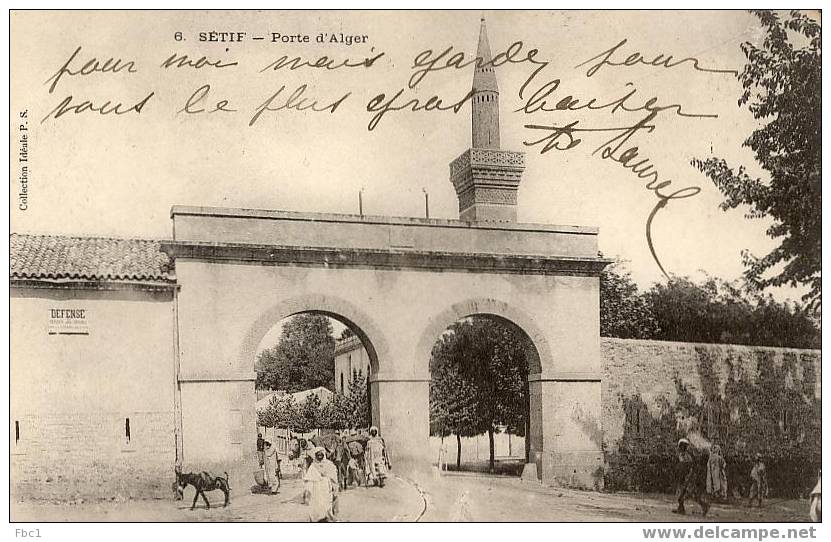 6. SÉTIF — Porte d'Alger
pour moi mais garde pour
vous le plus gros baiser
Collection Idéale P. S.
DÉFENSE
Fbc1
www.delcampe.net